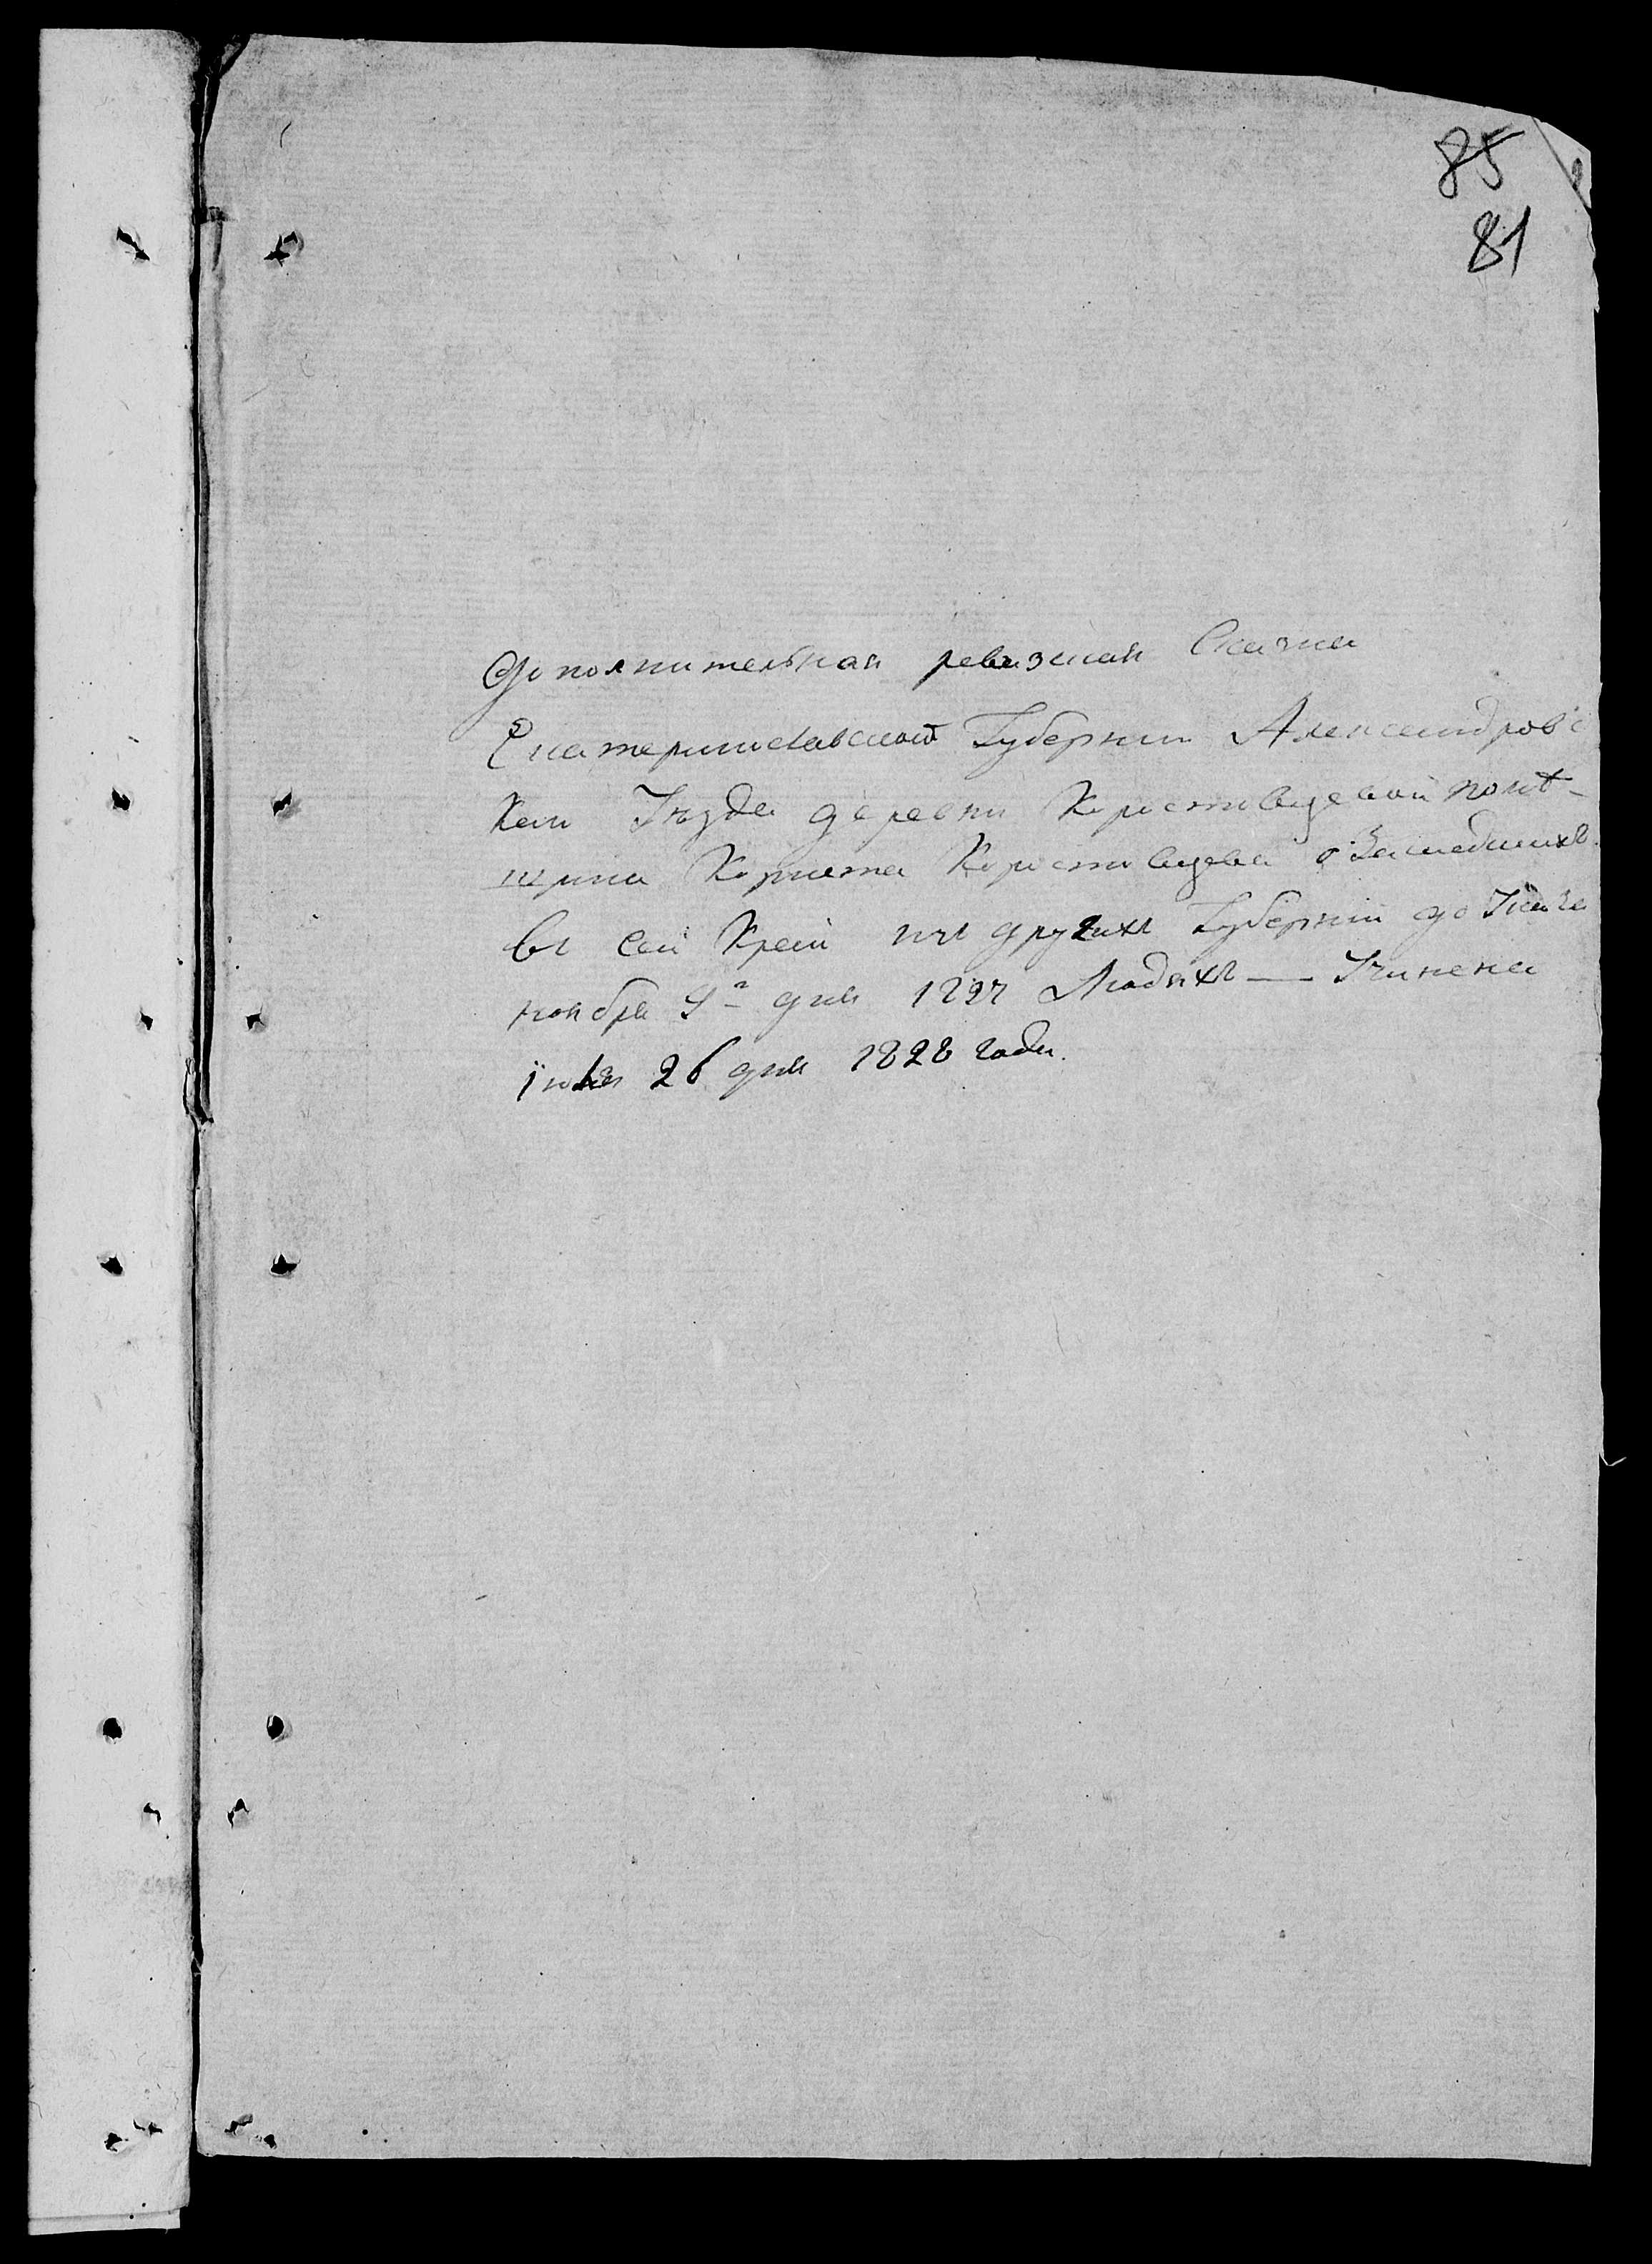 85
81
Дополнительная ревизкая Сказка
Екатеринославской Губернии Александровс
каго Уезда деревни Коростовцевой помѣ-
щика Корнета Коростовцева о Зашедшихъ
въ сей Край изъ другихъ Губерній до Указа
ноября 9го дня 1827 Людяхъ — Учинена
іюня 26 дня 1828 года.